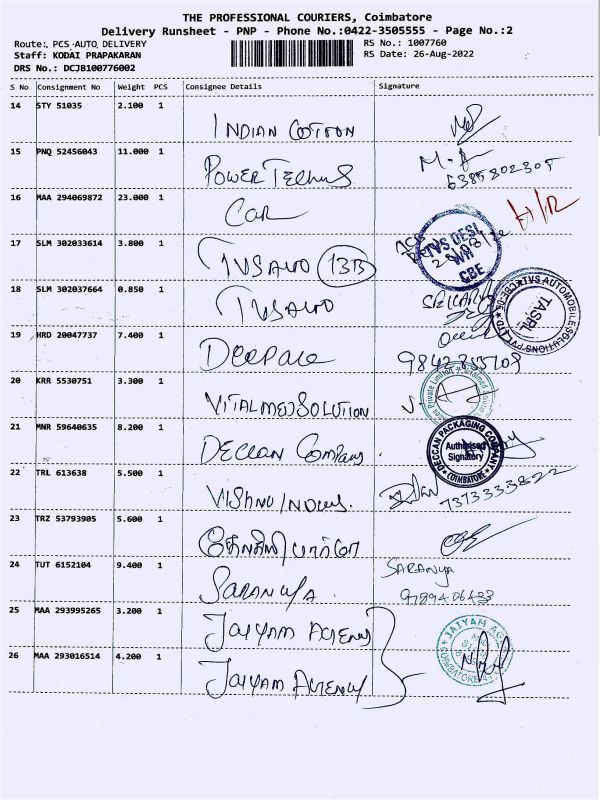 THE PROFESSIONAL COURIERS, Coimbatore
Delivery Runsheet - PNP - Phone No.:0422-3505555 - Page No.:2
Route: PCS AUTO DELIVERY RS No.: 1007760
Staff: KODAI PRAPAKARAN RS Date: 26-Aug-2022
DRS No.: DCJB100776002
S No Consignment No Weight PCS Consignee Details Signature
14 STY 51035 2.100 1 INDIAN COTTON
15 PNQ 52456043 11.000 1 POWER 6385802305
16 MAA 294069872 23.000 1 CAR
TVS DESI
CBE
17 SLM 302033614 3.800 1 TVS AUTO
18 SLM 302037664 0.850 1 TVS AUTO
TVS AUTOMOBILE SOLUTIONS PVT LTD CBE
TASPL
19 HRD 20047737 7.400 1
20 KRR 5530751 3.300 1 VITALMED SOLUTION
21 MNR 59640635 8.200 1 DECCAN Company
DECCAN PACKAGING COMPANY
Authorised
Signatory
COIMBATORE
22 TRL 613638 5.500 1 VISHNU 7373333822
23 TRZ 53793905 5.600 1
24 TUT 6152104 9.400 1 SARANYA SARANYA
9789406488
25 MAA 293995265 3.200 1 JAIYAM AGENCY
JAIYAM
COIMBATORE
26 MAA 293016514 4.200 1 JAIYAM AGENCY